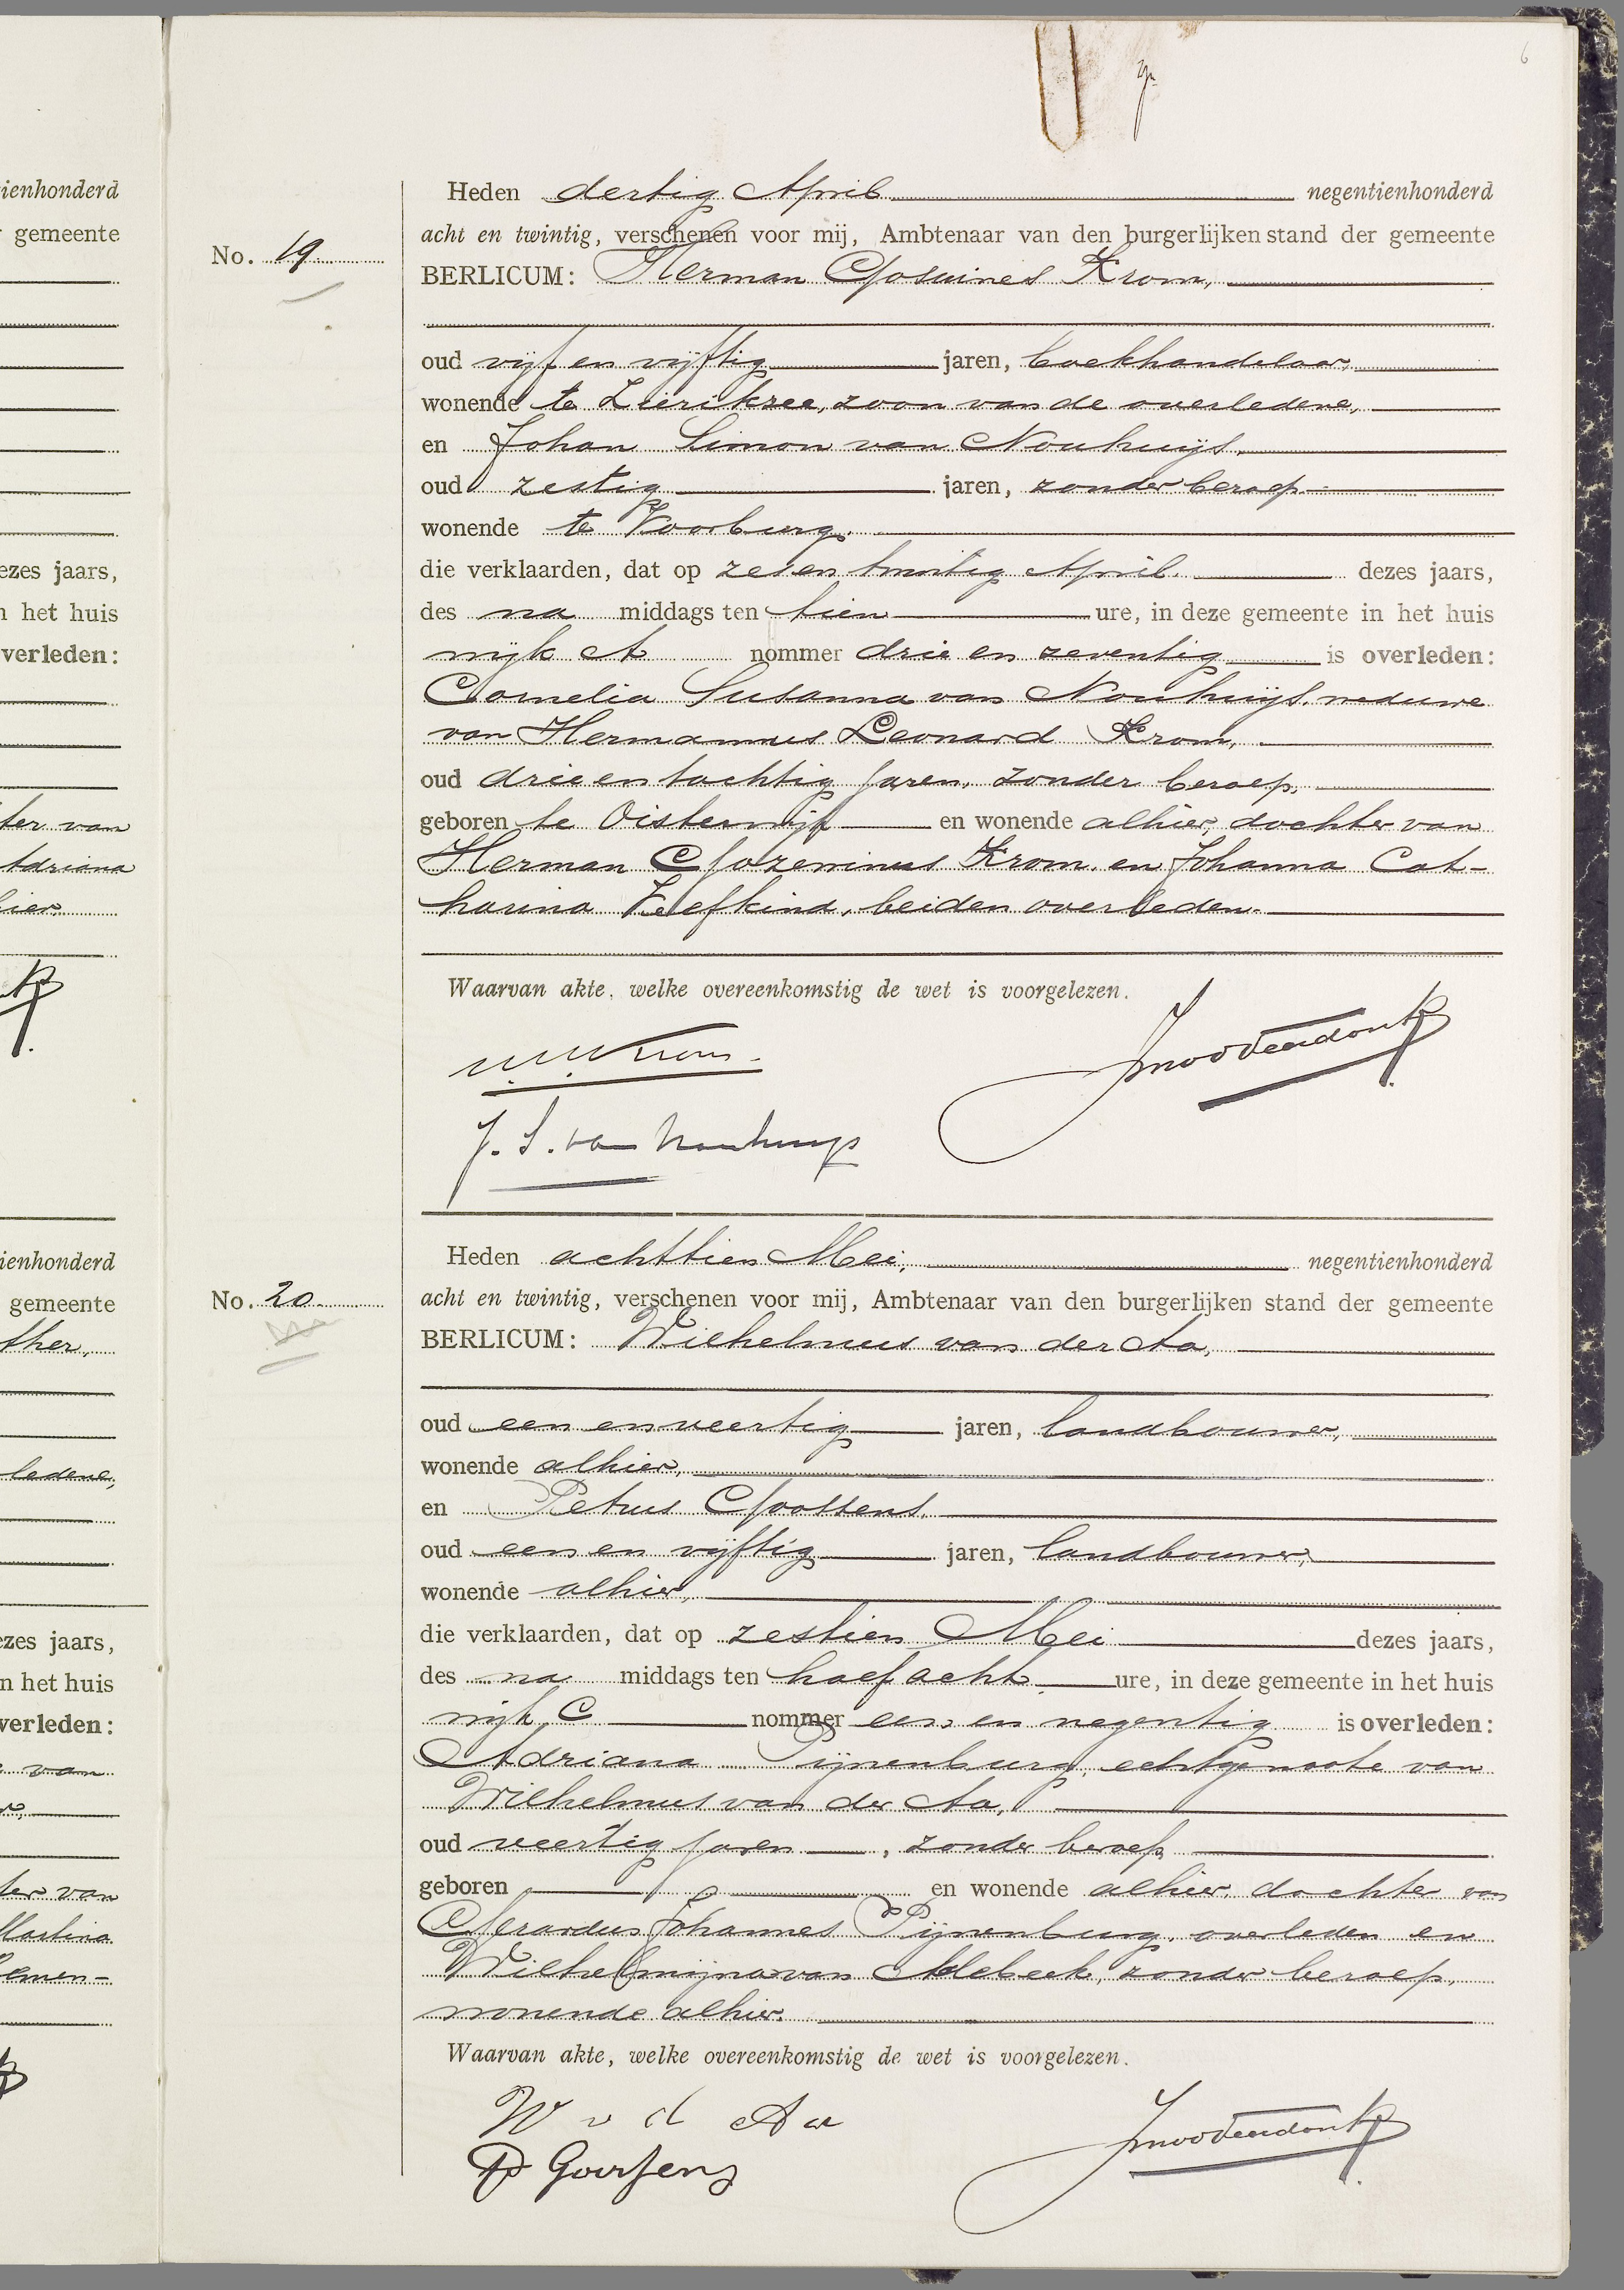 6
ienhonderd
gemeente
ezes jaars,
n het huis
verleden:
ter van
Adriana
hier
ienhonderd
gemeente
ther,
ledene,
ezes jaars,
n het huis
verleden:
van
ter van
Martina
emen-
Heden dertig April negentienhonderd
No. 19
acht en twintig, verschenen voor mij, Ambtenaar van den burgerlijken stand der gemeente
BERLICUM: Herman Gosuines Krom,
oud vijf en vijftig jaren, boekhandelaar,
wonende te Zierikzee, zoon van de overledene,
en Johan Simon van Nouhuijs,
oud zestig jaren, zonder beroep
wonende te Voorburg,
die verklaarden, dat op zes en twintig April dezes jaars,
des na middags ten tien ure, in deze gemeente in het huis
wijk A nommer drie en zeventig is overleden:
Cornelia Susanna van Nouhuijs, weduwe
van Hermannus Leonard Krom,
oud drie en tachtig jaren, zonder beroep,
geboren te Oisterwijk en wonende alhier, dochter van
Herman Gozewinus Krom en Johanna Cat-
harina Keefkind, beiden overleden.
Waarvan akte, welke overeenkomstig de wet is voorgelezen.
Krom.
J. S. van Nouhuys
Heden achttien Mei, negentienhonderd
No. 20
acht en twintig, verschenen voor mij, Ambtenaar van den burgerlijken stand der gemeente
BERLICUM: Wilhelmus van der Aa,
oud een en veertig jaren, landbouwer,
wonende alhier,
en Petrus Goossens,
oud een en vijftig jaren, landbouwer,
wonende alhier,
die verklaarden, dat op zestien Mei dezes jaars,
des na middags ten half acht ure, in deze gemeente in het huis
wijk C nommer een en negentig is overleden:
Adriana Pijnenburg, echtgenoote van
Wilhelmus van der Aa,
oud veertig jaren, zonder beroep
geboren en wonende alhier, dochter van
Gerardus Johannes Pijnenburg, overleden en
Wilhelmijna van Adebeek, zonder beroep,
wonende alhier.
Waarvan akte, welke overeenkomstig de wet is voorgelezen.
W v d Aa
P Goossens